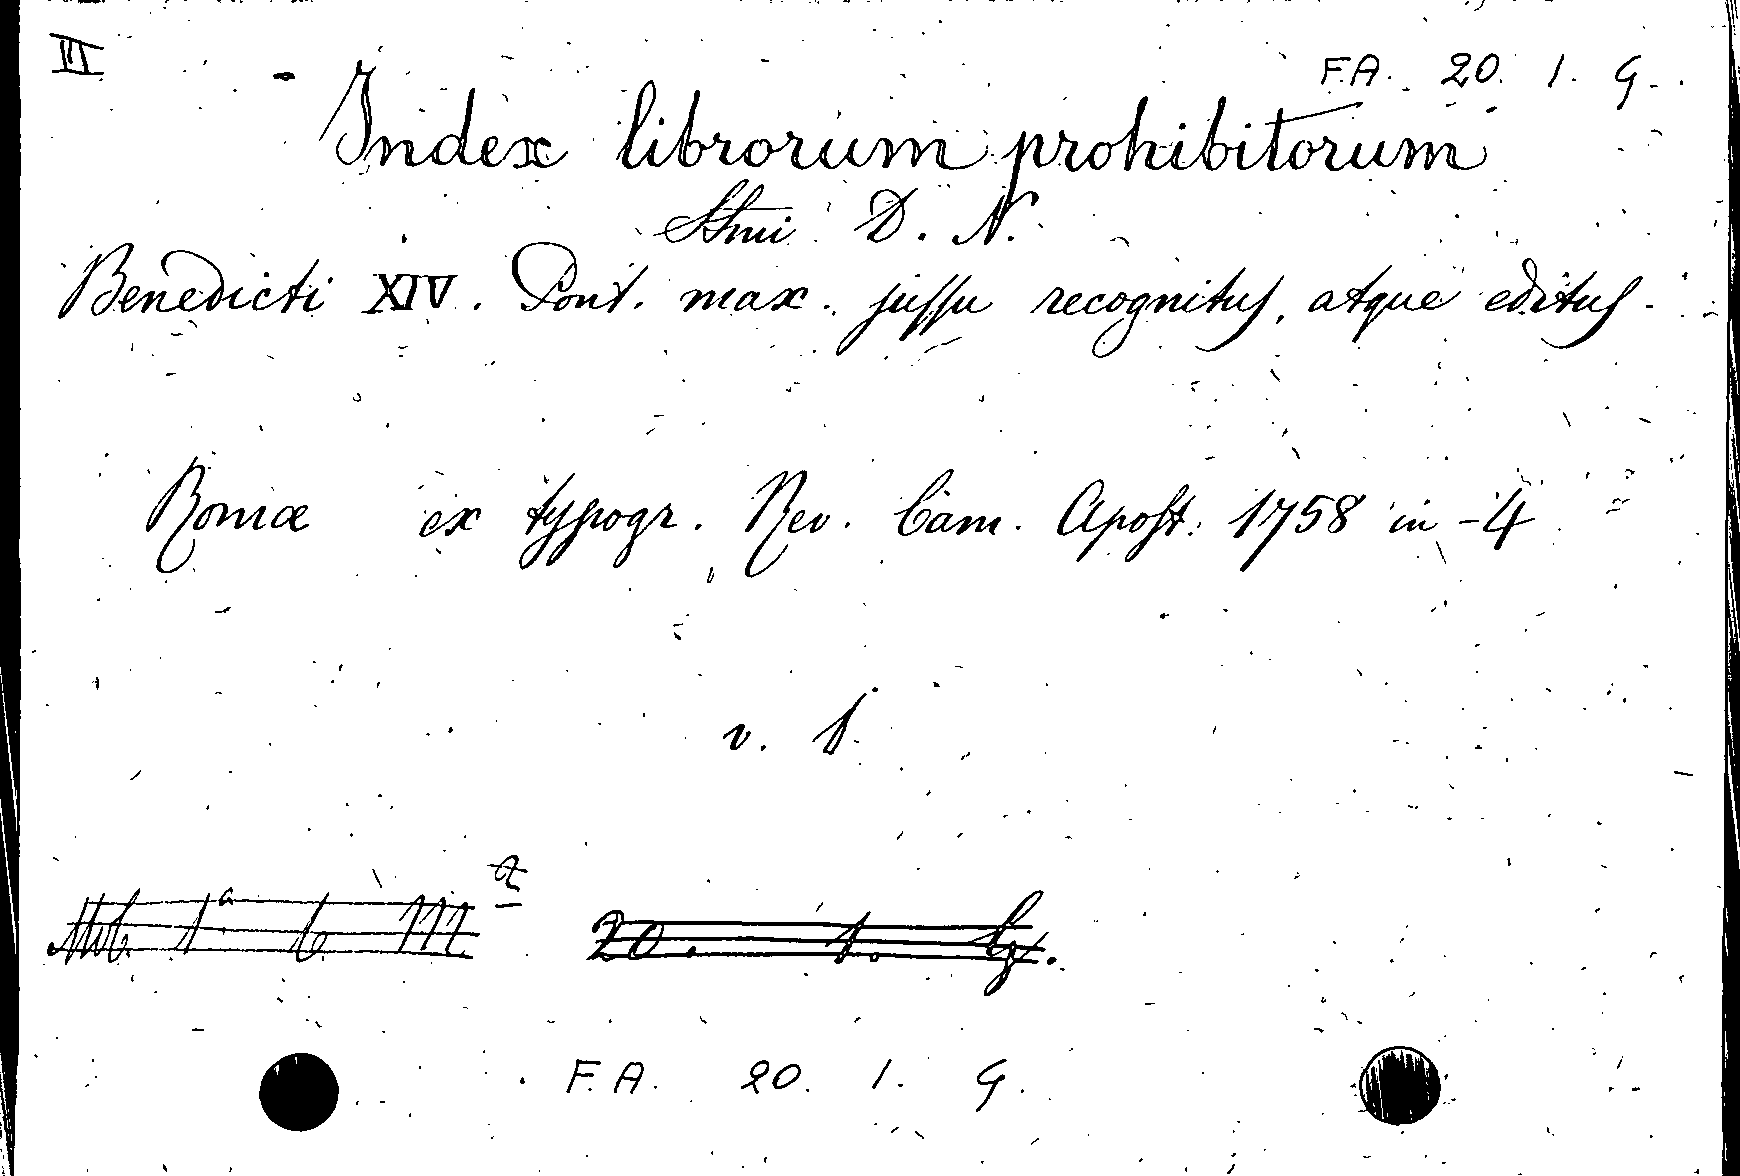 VI
F.A. 20. 1. G.
Index librorum prohibitorum
Ssmi D. N.
Benedicti XIV. Pont. max. jussu recognitus, atque editus.
Romæ ex typogr. Rev. Cam. Apost. 1758 in-4
v. 1
20. 1. G.
F.A. 20. 1. G.